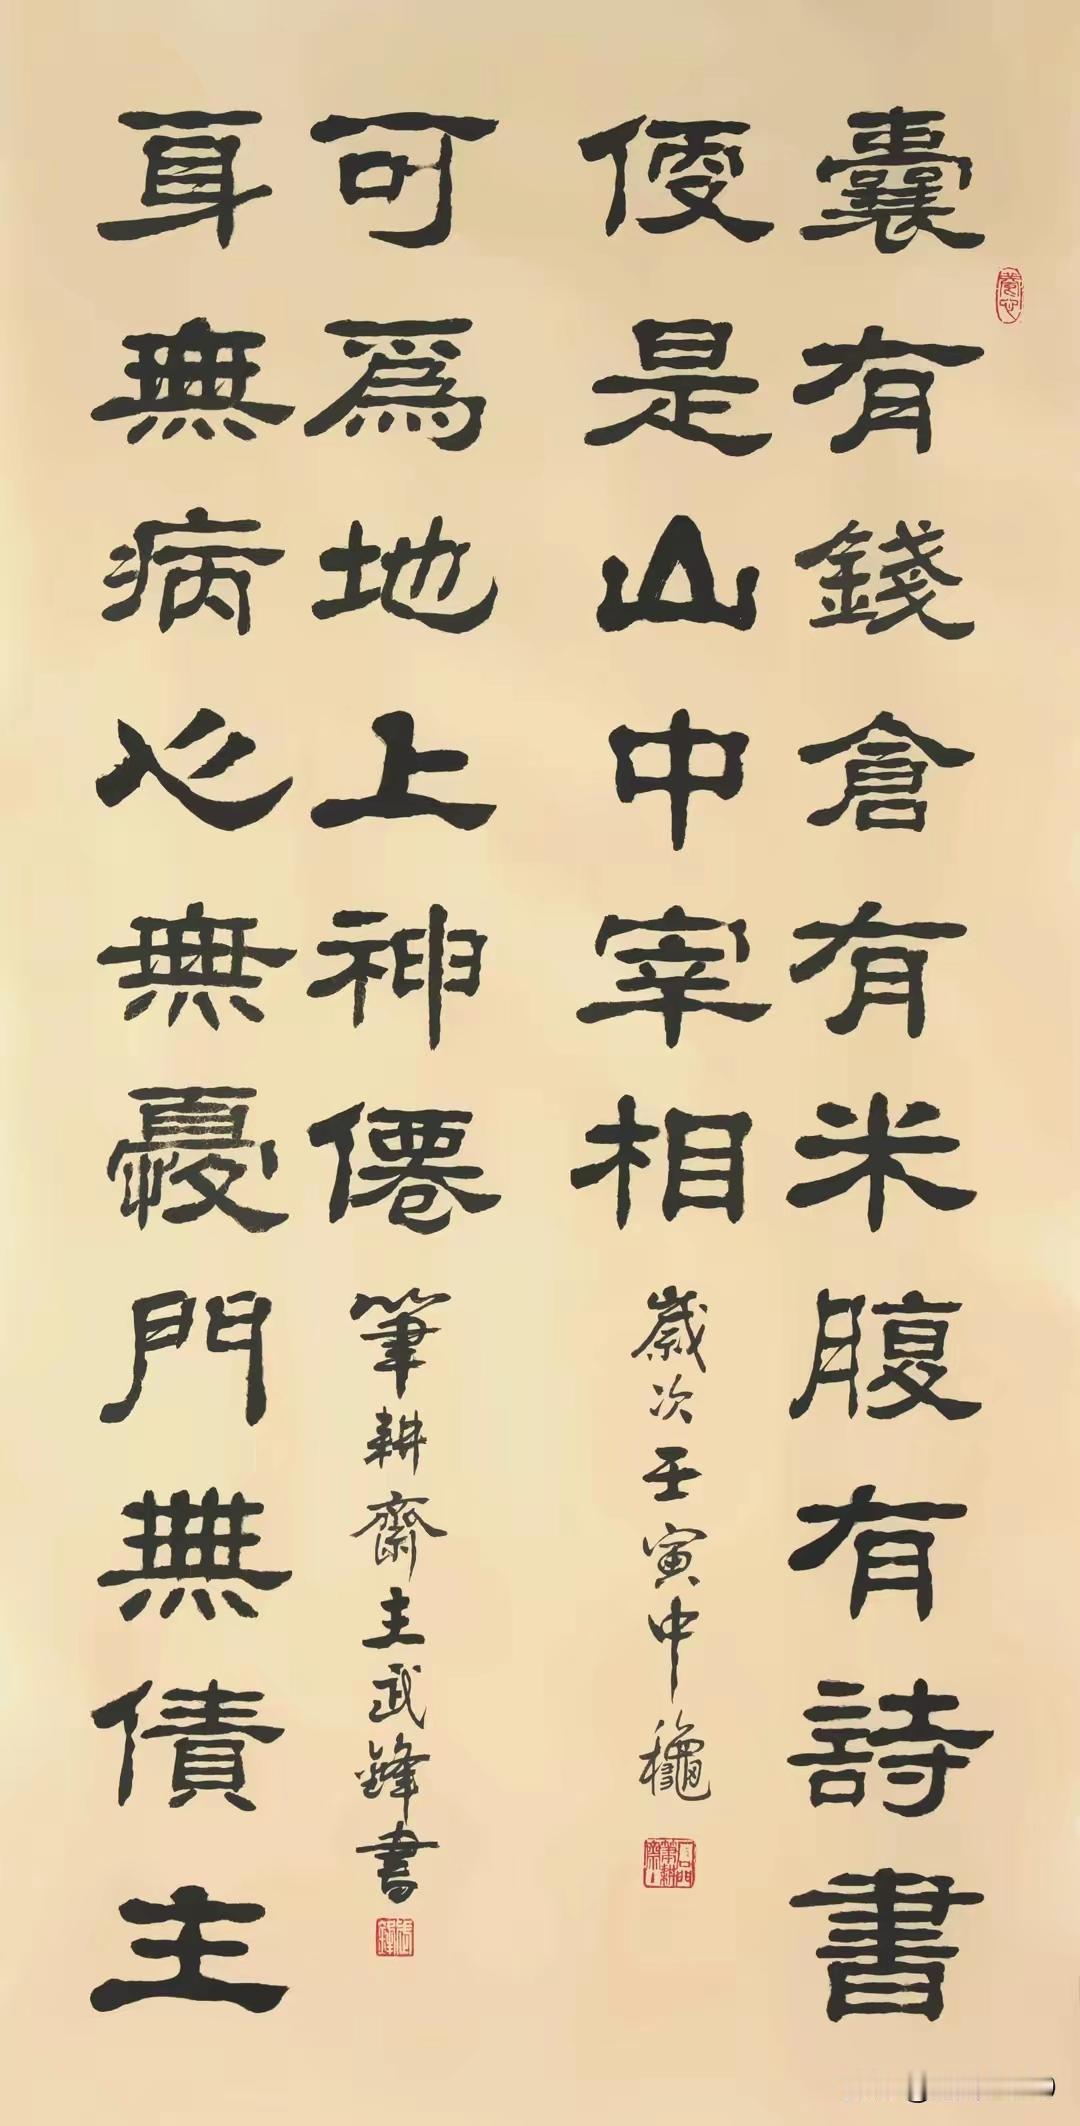 囊有錢倉有米腹有詩書
便是山中宰相
歲次壬寅中穐
身無病心無憂門無債主
可為地上神僊
筆耕齋主武鋒書